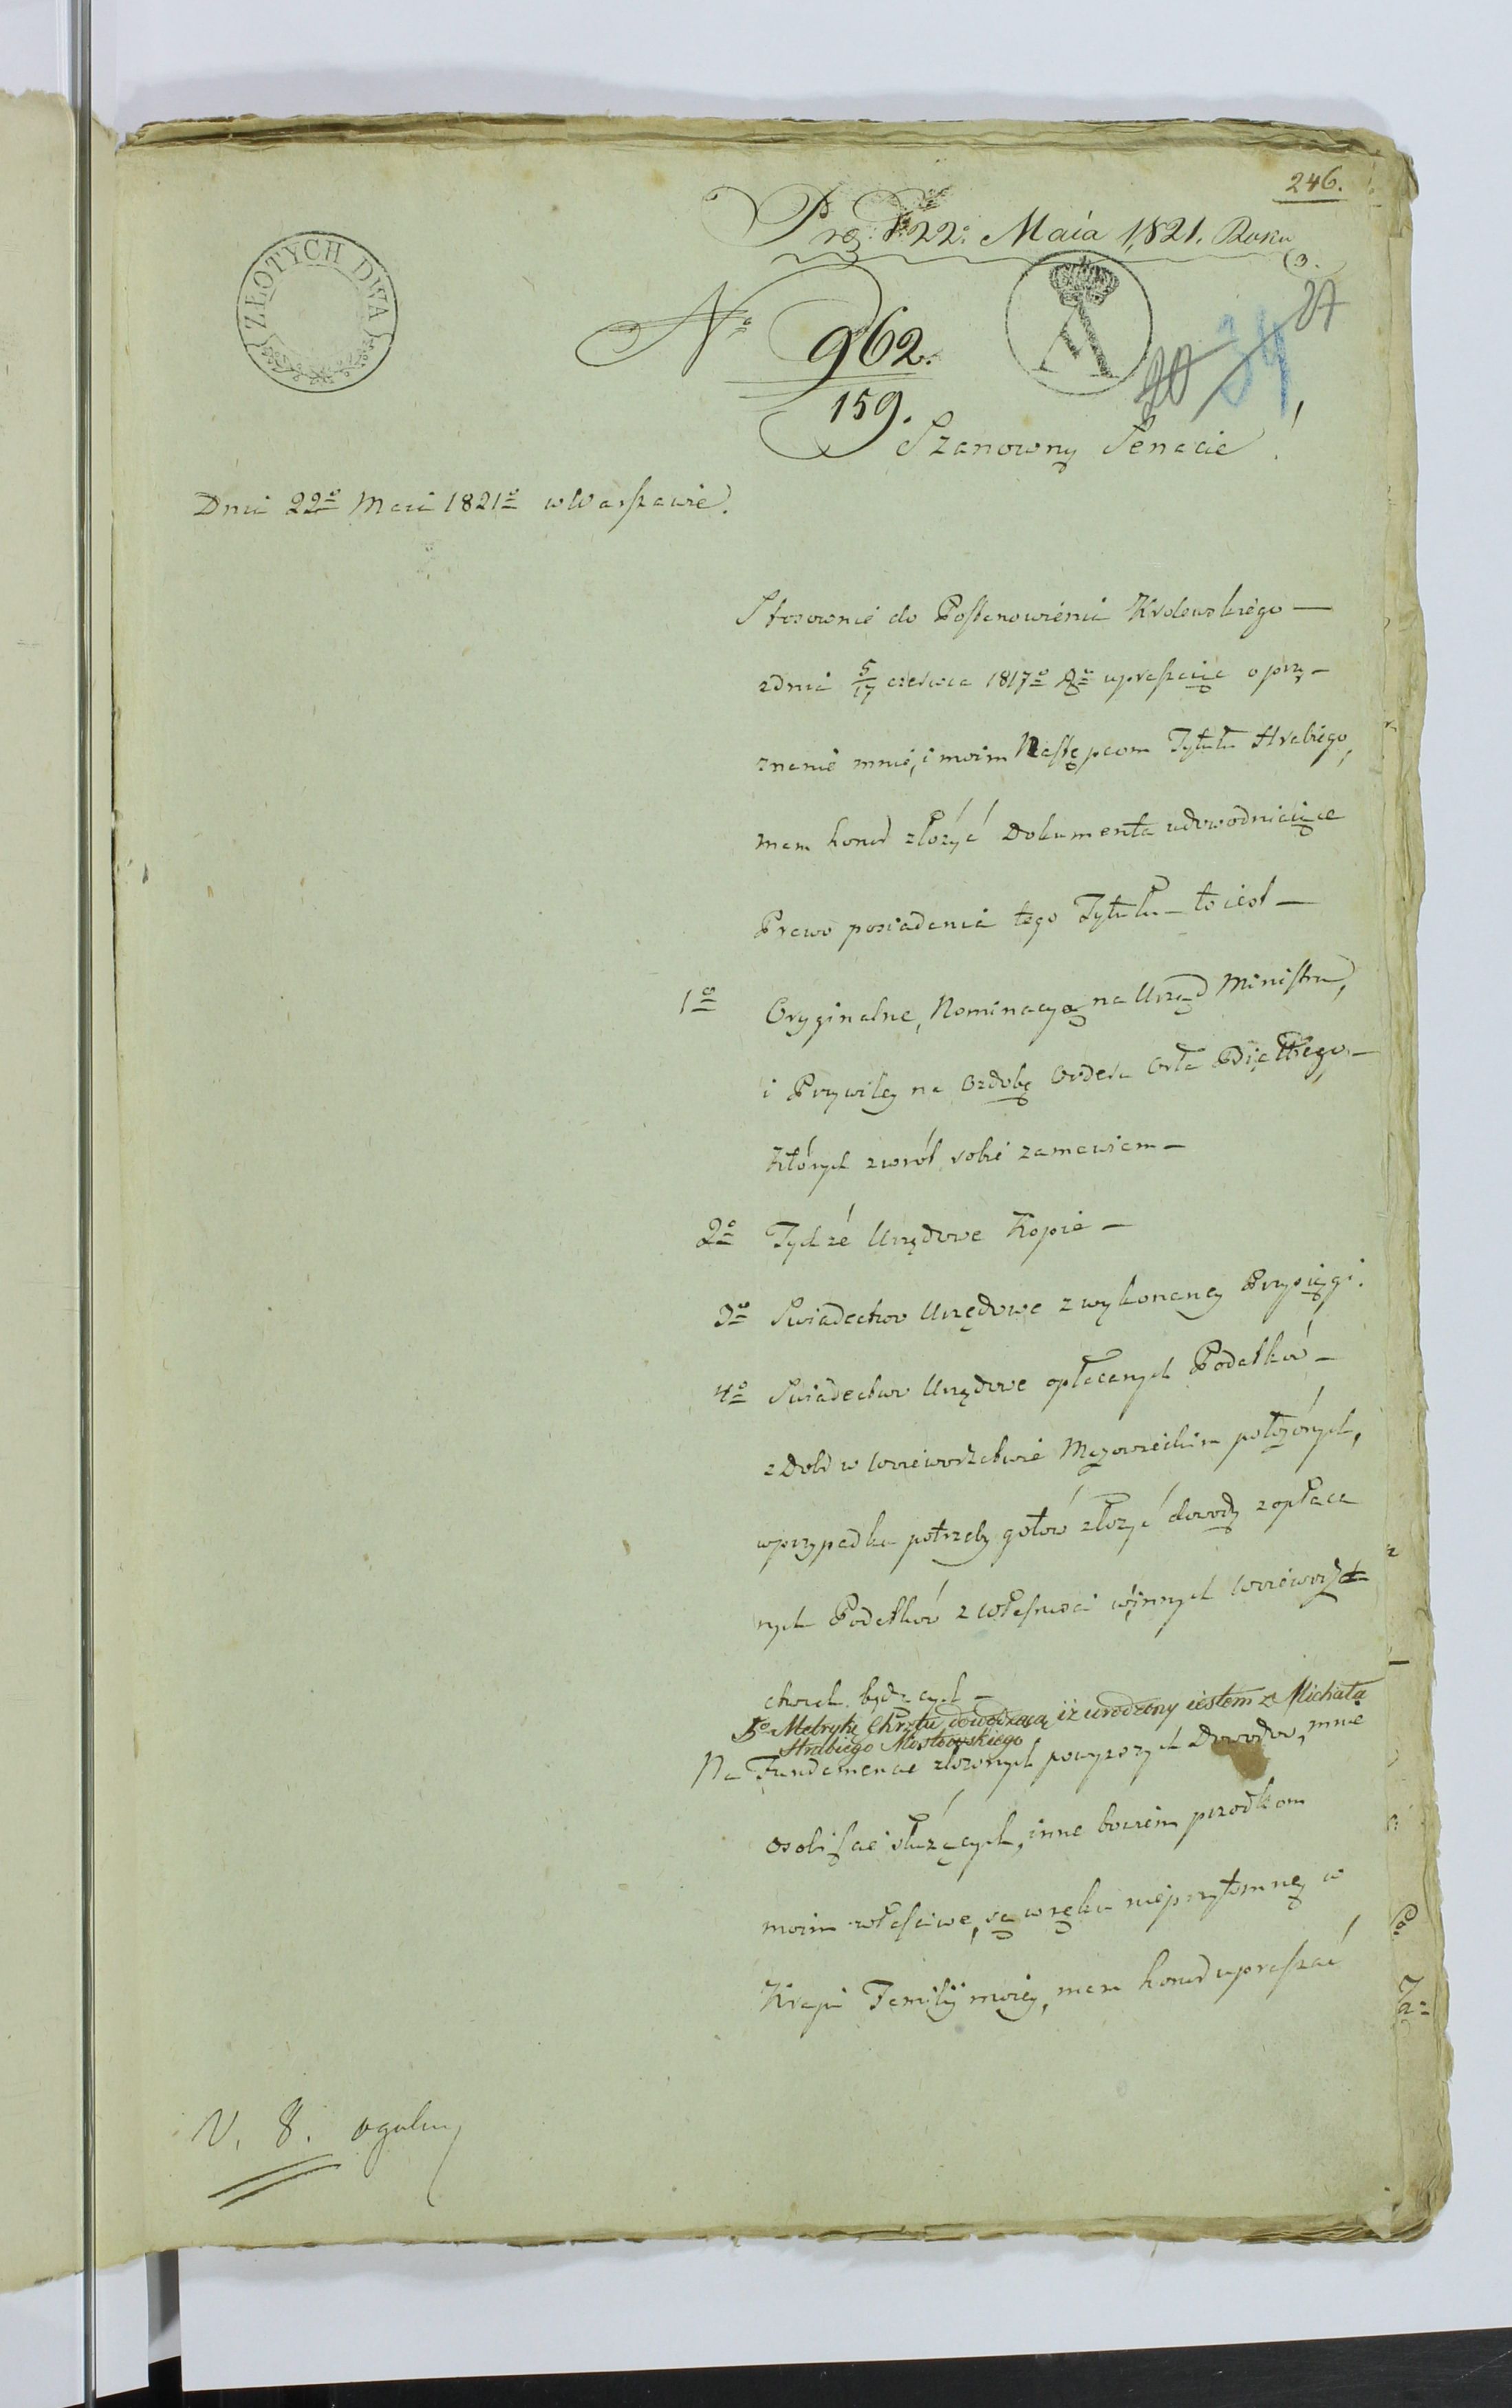 246.
Prez: d: 22: Maia 1821. Roku
ZŁOTYCH DWA
No 962.
159.
A
20 39 27
Szanowny Senacie!
Dnia 22o Maia 1821o w Warszawie.
Stosownie do Postanowienia Krolewskiego —
z dnia 5/17 czerwca 1817o Ro upraszaiąc o przy-
znanie mnie, i moim Następcom Tytułu Hrabiego,
mam honor złożyć Dokumenta udowodniaiące
Prawo posiadania tego Tytułu — to iest —
1o Oryginalne, Nominacyą na Urząd Ministra,
i Przywiley na Ozdobę Orderu Orła Białłego, —
Których zwrót sobie zamawiam —
2o Tychże Urzędowe Kopie —
3o Swiadectwo Urzędowe z wykonaney Przysięgi.
4o Swiadectwo Urzędowe opłaconych Podatków —
z Dobr w Woiewodztwie Mazowieckim położonych,
w przypadku potrzeby gotów złożyć dowody z opłaca
nych Podatków z własnosci w innych Woiewodz
ztwach będących —
5o Metrykę Chrztu dowodzącą iż urodzony iestem z Michała
Hrabiego Mostowskiego
Na Fundamencie złożonych powyższych Dowodow, mnie
osobiscie służących, inne bowiem przodkom
moim właściwe, są w ręku nieprzytomney w
Kraju Familij moiey, mam honor upraszać
V. 8. ogulny